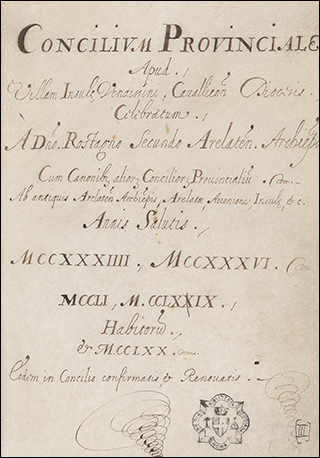 CONCILIVM PROVINCIALE
Apud
Villam Insule Venaissini, Cauallicen Diocesis
Celebratum
A Dno. Rostagno Secundo Arelaten. Archiep
Cum Canonib, alior, Concilior, Provincialiu
Ab antiquis Arelaten Archieps, Arelate, Auenione, Insule, &c.
Annis Salutis.
MCCXXXIIII, MCCXXXVI.
MCCLI, M.CCLXXIX,
Habitoru
& M.CCLXX
Eodem in Concilio confirmatis, & Renouatis.
III